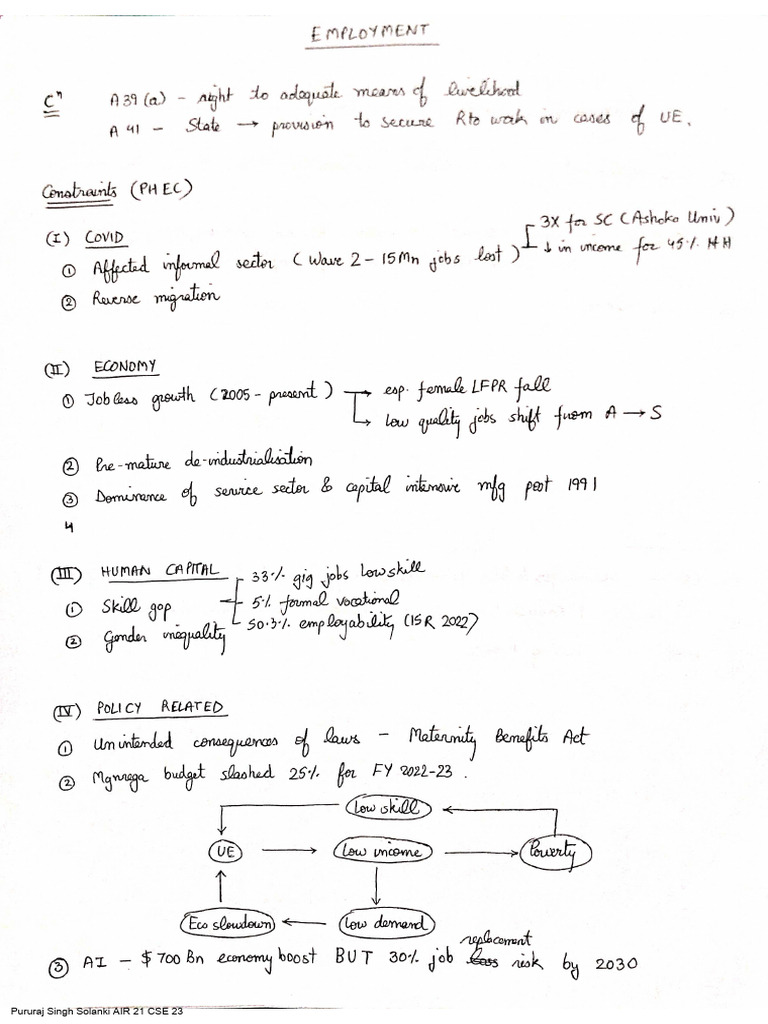 EMPLOYMENT
Cⁿ A 39 (a) - right to adequate means of livelihood
A 41 - State → provision to secure R to work in cases of UE.
Constraints (PHEC)
(I) COVID
① Affected informal sector (Wave 2 - 15Mn jobs lost)
3X for SC (Ashoka Univ)
↓ in income for 45% HH
② Reverse migration
(II) ECONOMY
① Jobless growth (2005 - present) → esp. female LFPR fall
→ low quality jobs shift from A → S
② Pre-mature de-industrialisation
③ Dominance of service sector & capital intensive mfg post 1991
4
(III) HUMAN CAPITAL
① Skill gap
33% gig jobs low skill
5% formal vocational
50.3% employability (ISR 2022)
② Gender inequality
(IV) POLICY RELATED
① Unintended consequences of laws - Maternity Benefits Act
② Mgnrega budget slashed 25% for FY 2022-23.
Low skill
UE → Low income → Poverty
Eco slowdown ← Low demand
③ AI - $ 700 Bn economy boost BUT 30% job replacement loss risk by 2030
Pururaj Singh Solanki AIR 21 CSE 23